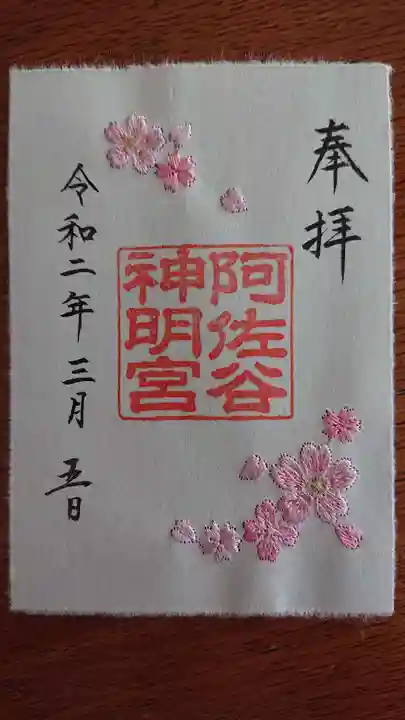 奉拝
阿佐谷
神明宮
令和二年三月五日